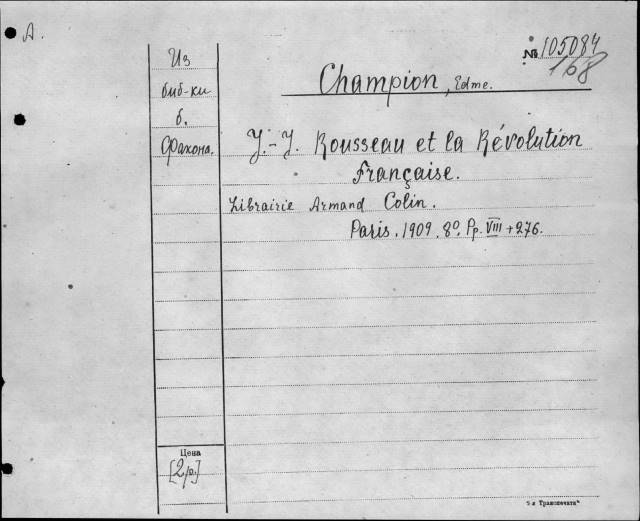 А.
№ 105084
168
Из
биб-ки
б.
Фалкона.
Champion, Edme.
J.-J. Rousseau et la Révolution
Française.
Librairie Armand Colin.
Paris. 1909. 8º. Pp. VIII + 276.
Цена
[2 р.]